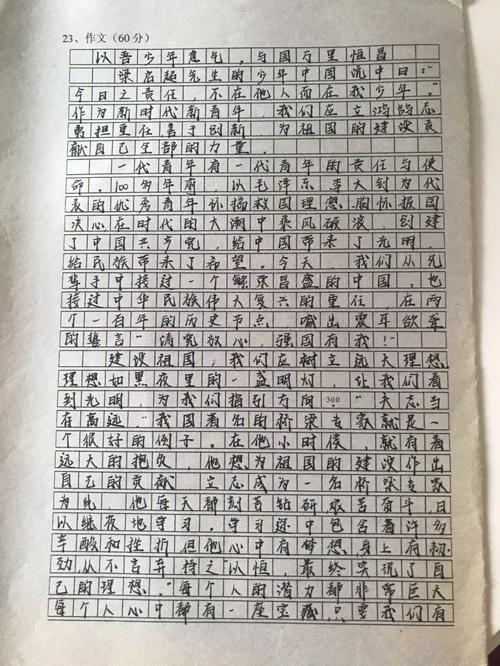 23、作文（60分）
以吾少年意气，与国万里恒昌
梁启超先生的少年中国说中曰："
今日之责任，不在他人而在我少年。"
作为新时代新青年，我们应立鸿鹄志
勇担重任善于创新 为祖国的建设贡
献自己全部的力量。
一代青年有一代青年的责任与使
命。100多年前 以毛泽东、李大钊为代
表的优秀青年怀揣救国理想.胸怀报国
决心在时代的大潮中乘风破浪 创建
了中国共产党，给中国带来了光明，
给民族带来了希望。今天 我们从先
辈手中接过一个繁荣昌盛的中国，也
接过中华民族伟大复兴的重任 在两
个一百年的历史节点 喊出震耳欲聋
的誓言"请党放心，强国有我！"
建设祖国，我们应树立远大理想.
理想如黑夜里的一盏明灯，让我们看
到光明，为我们指引方向.300 "志当
存高远."我国著名的桥梁专家就是一
个很好的例子。在他小时候，就有着
远大的抱负，他想为祖国的建设作出
自己的贡献 立志成为一名桥梁专家
为此 他每天都刻苦钻研艰苦奋斗,日
以继夜地学习.学习途中包含着许多
辛酸和挫折但他心中有梦想.身上有韧
劲从不言弃持之以恒，最终实现了自
己的理想."每个人的潜力都非常巨大
每个人心中都有一座宝藏只要我们有